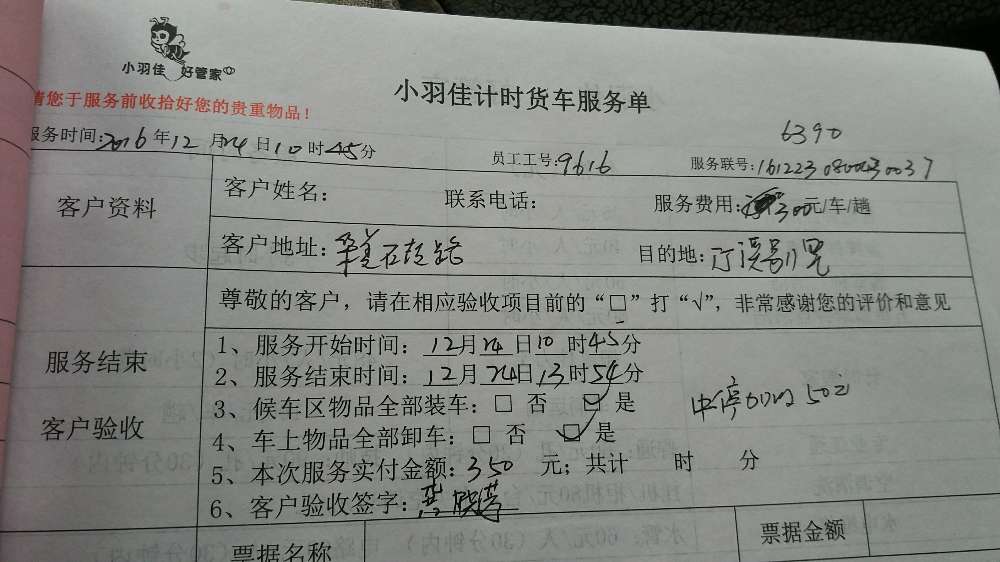 小羽佳 好管家
小羽佳计时货车服务单
请您于服务前收拾好您的贵重物品！
6390
服务时间:2016年12月24日10时45分 员工工号:9616 服务联号:161223080030037
客户资料
客户姓名: 联系电话: 服务费用:300元/车/趟
客户地址: 石 路 目的地:
尊敬的客户，请在相应验收项目前的“□”打“√”，非常感谢您的评价和意见
服务结束
客户验收
1、服务开始时间: 12月24日10时45分
2、服务结束时间: 12月24日13时54分
3、候车区物品全部装车:□ 否 ☑是
中停 50元
4、车上物品全部卸车:□ 否 ☑是
5、本次服务实付金额: 350 元；共计 时 分
6、客户验收签字:
票据名称 票据金额